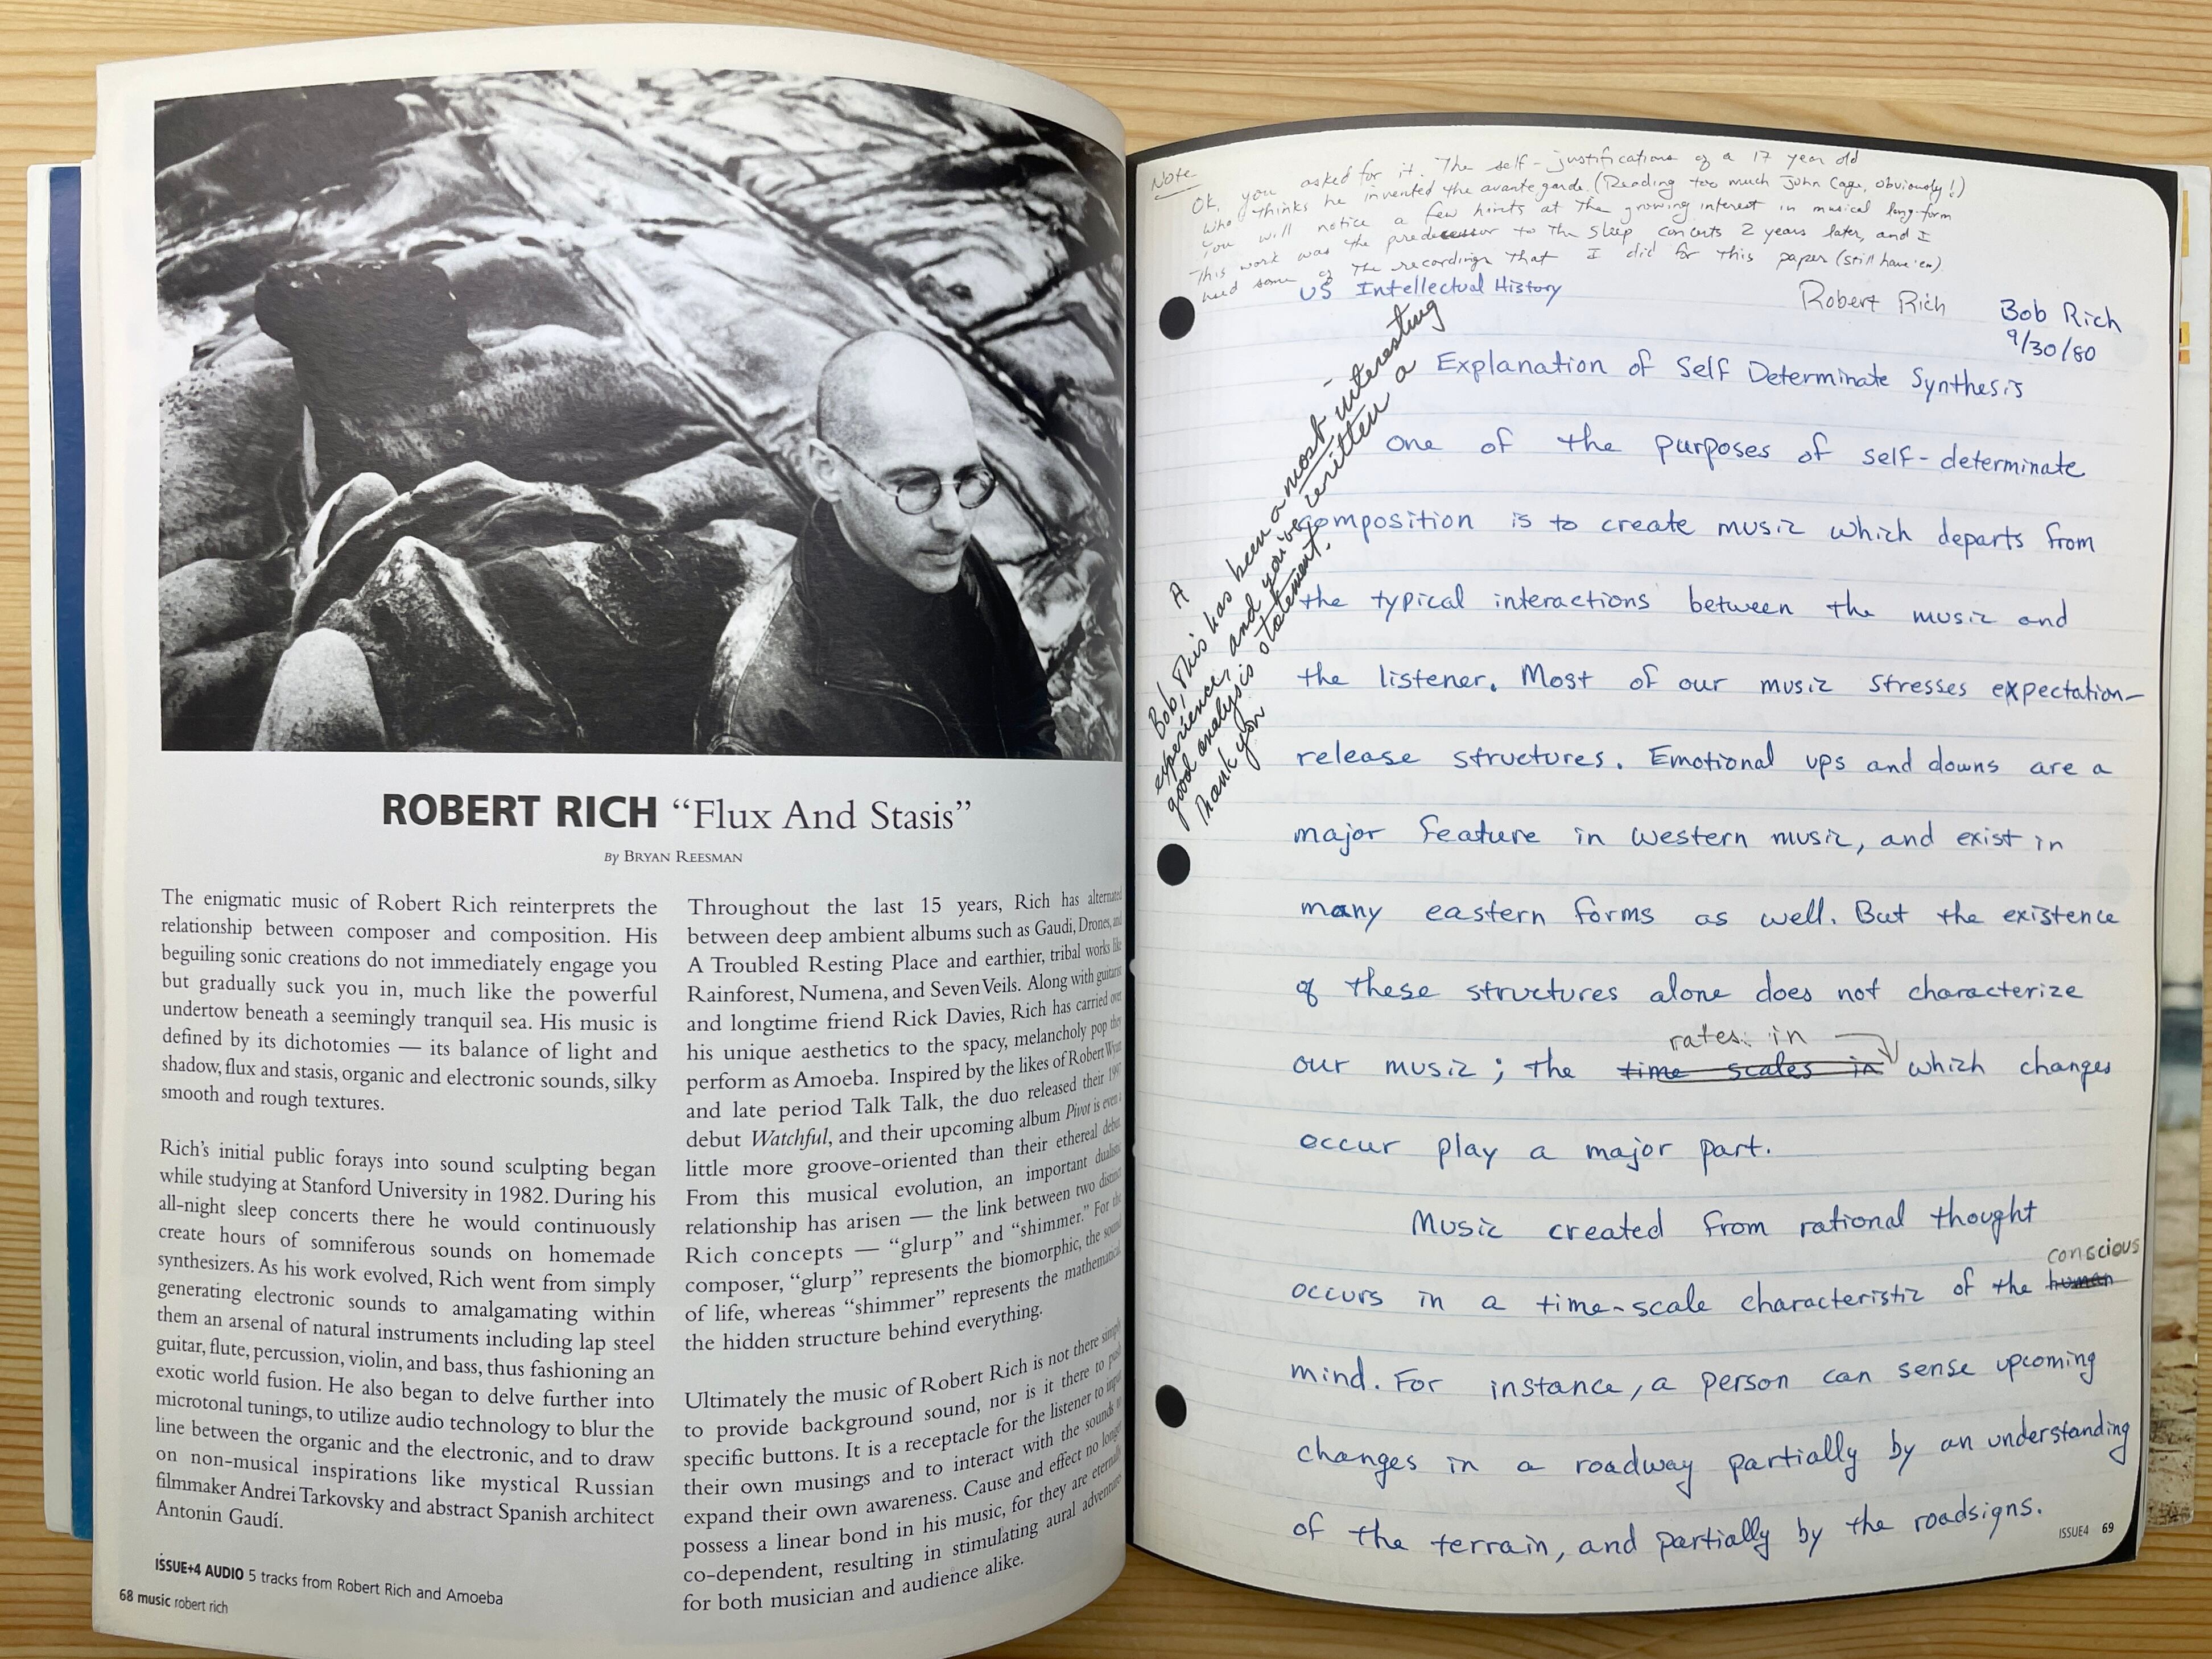 ROBERT RICH “Flux And Stasis”
By BRYAN REESMAN
The enigmatic music of Robert Rich reinterprets the
relationship between composer and composition. His
beguiling sonic creations do not immediately engage you
but gradually suck you in, much like the powerful
undertow beneath a seemingly tranquil sea. His music is
defined by its dichotomies — its balance of light and
shadow, flux and stasis, organic and electronic sounds, silky
smooth and rough textures.
Rich’s initial public forays into sound sculpting began
while studying at Stanford University in 1982. During his
all-night sleep concerts there he would continuously
create hours of somniferous sounds on homemade
synthesizers. As his work evolved, Rich went from simply
generating electronic sounds to amalgamating within
them an arsenal of natural instruments including lap steel
guitar, flute, percussion, violin, and bass, thus fashioning an
exotic world fusion. He also began to delve further into
microtonal tunings, to utilize audio technology to blur the
line between the organic and the electronic, and to draw
on non-musical inspirations like mystical Russian
filmmaker Andrei Tarkovsky and abstract Spanish architect
Antonin Gaudí.
ISSUE+4 AUDIO 5 tracks from Robert Rich and Amoeba
68 music robert rich
Throughout the last 15 years, Rich has alternated
between deep ambient albums such as Gaudi, Drones, and
A Troubled Resting Place and earthier, tribal works like
Rainforest, Numena, and Seven Veils. Along with guitarist
and longtime friend Rick Davies, Rich has carried over
his unique aesthetics to the spacy, melancholy pop they
perform as Amoeba. Inspired by the likes of Robert Wyatt
and late period Talk Talk, the duo released their
debut Watchful, and their upcoming album Pivot is even a
little more groove-oriented than their ethereal debut.
From this musical evolution, an important dualistic
relationship has arisen — the link between two distinct
Rich concepts — “glurp” and “shimmer.” For the
composer, “glurp” represents the biomorphic, the sound
of life, whereas “shimmer” represents the mathematical,
the hidden structure behind everything.
Ultimately the music of Robert Rich is not there simply
to provide background sound, nor is it there to push
specific buttons. It is a receptacle for the listener to input
their own musings and to interact with the sounds to
expand their own awareness. Cause and effect no longer
possess a linear bond in his music, for they are eternally
co-dependent, resulting in stimulating aural adventures
for both musician and audience alike.
Note
Ok, you asked for it. The self-justifications of a 17 year old
who thinks he invented the avante garde. (Reading too much John Cage, obviously!)
You will notice a few hints at the growing interest in musical long-form
This work was the predecessor to the Sleep Concerts 2 years later, and I
used some of the recordings that I did for this paper (still have 'em).
Robert Rich
US Intellectual History
Bob Rich
9/30/80
A
Bob, This has been a most interesting
experience, and you've written a
good analysis statement.
Thank you
Explanation of Self Determinate Synthesis
One of the purposes of self-determinate
composition is to create music which departs from
the typical interactions between the music and
the listener. Most of our music stresses expectation-
release structures. Emotional ups and downs are a
major feature in western music, and exist in
many eastern forms as well. But the existence
of these structures alone does not characterize
rates in
our music; the time scales in which changes
occur play a major part.
Music created from rational thought
conscious
occurs in a time-scale characteristic of the human
mind. For instance, a person can sense upcoming
changes in a roadway partially by an understanding
of the terrain, and partially by the roadsigns.
ISSUE4 69